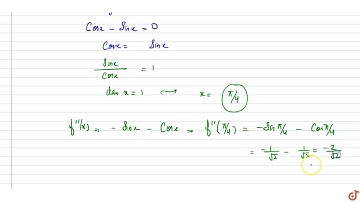 Cosx - Sinx = 0
Cosx = Sinx
Sinx / Cosx = 1
tan x = 1 ⟶ x = π/4
f''(x) = - Sinx - Cosx = f''(π/4) = -Sin π/4 - Cos π/4
= -1/√2 - 1/√2 = -2/√2